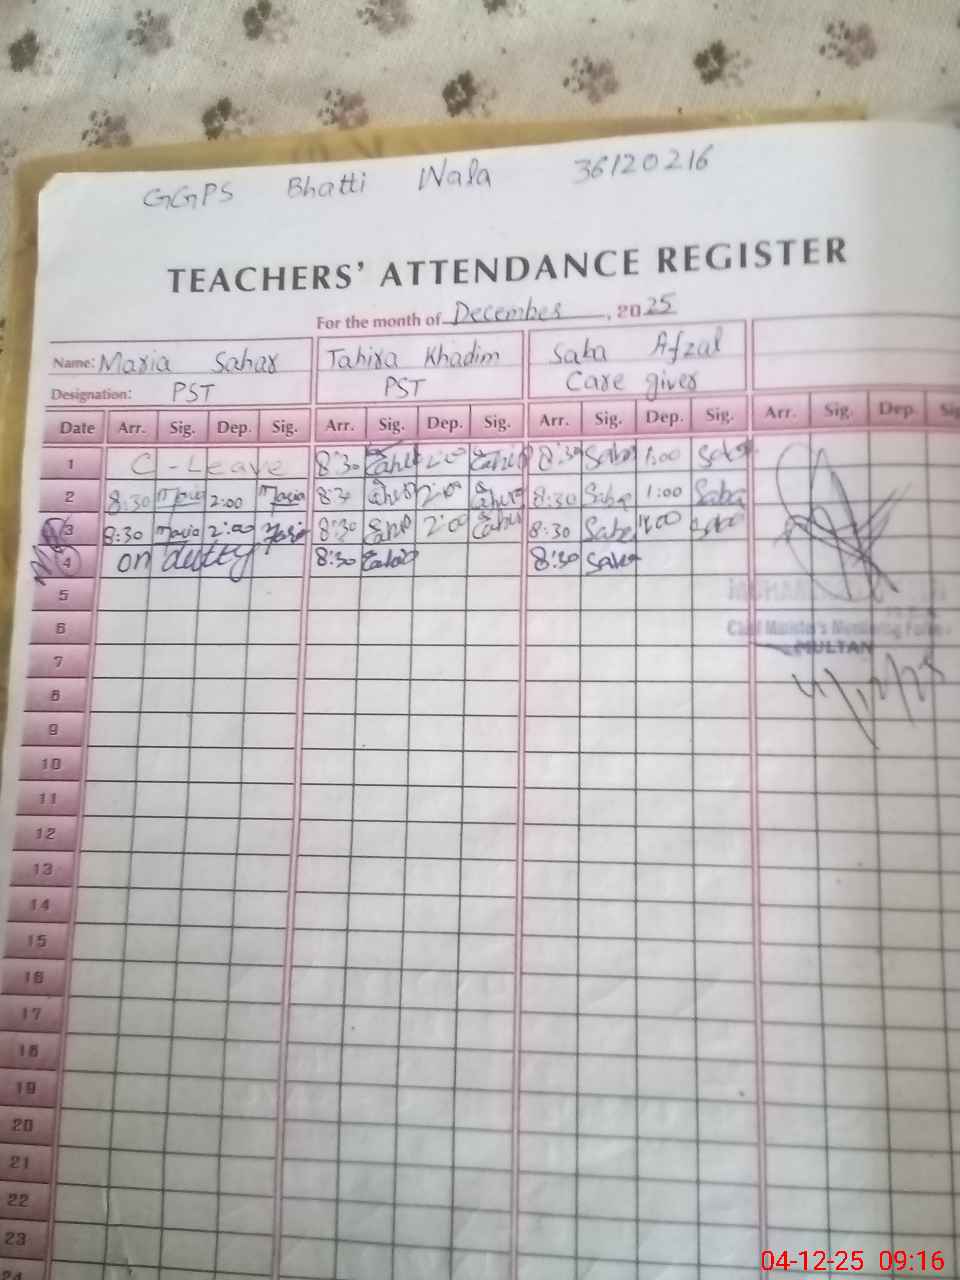 GGPS Bhatti Wala 36120216
TEACHERS' ATTENDANCE REGISTER
For the month of December, 2025
Name: Maria Sahar Tahira Khadim Saba Afzal
Designation: PST PST Care giver
Date Arr. Sig. Dep. Sig. Arr. Sig. Dep. Sig. Arr. Sig. Dep. Sig. Arr. Sig. Dep. Sig.
1 C-Leave 8:30 2:00 8:30 Saba 1:00 Saba
2 8:30 Maria 2:00 Maria 8:30 2:00 8:30 Saba 1:00 Saba
3 8:30 Maria 2:00 Maria 8:30 2:00 8:30 Saba Saba
4 on dutty 8:30 8:30 Saba
5
6
7
MULTAN
8
4/12/25
9
10
11
12
13
14
15
16
17
18
19
20
21
22
23
24
04-12-25 09:16